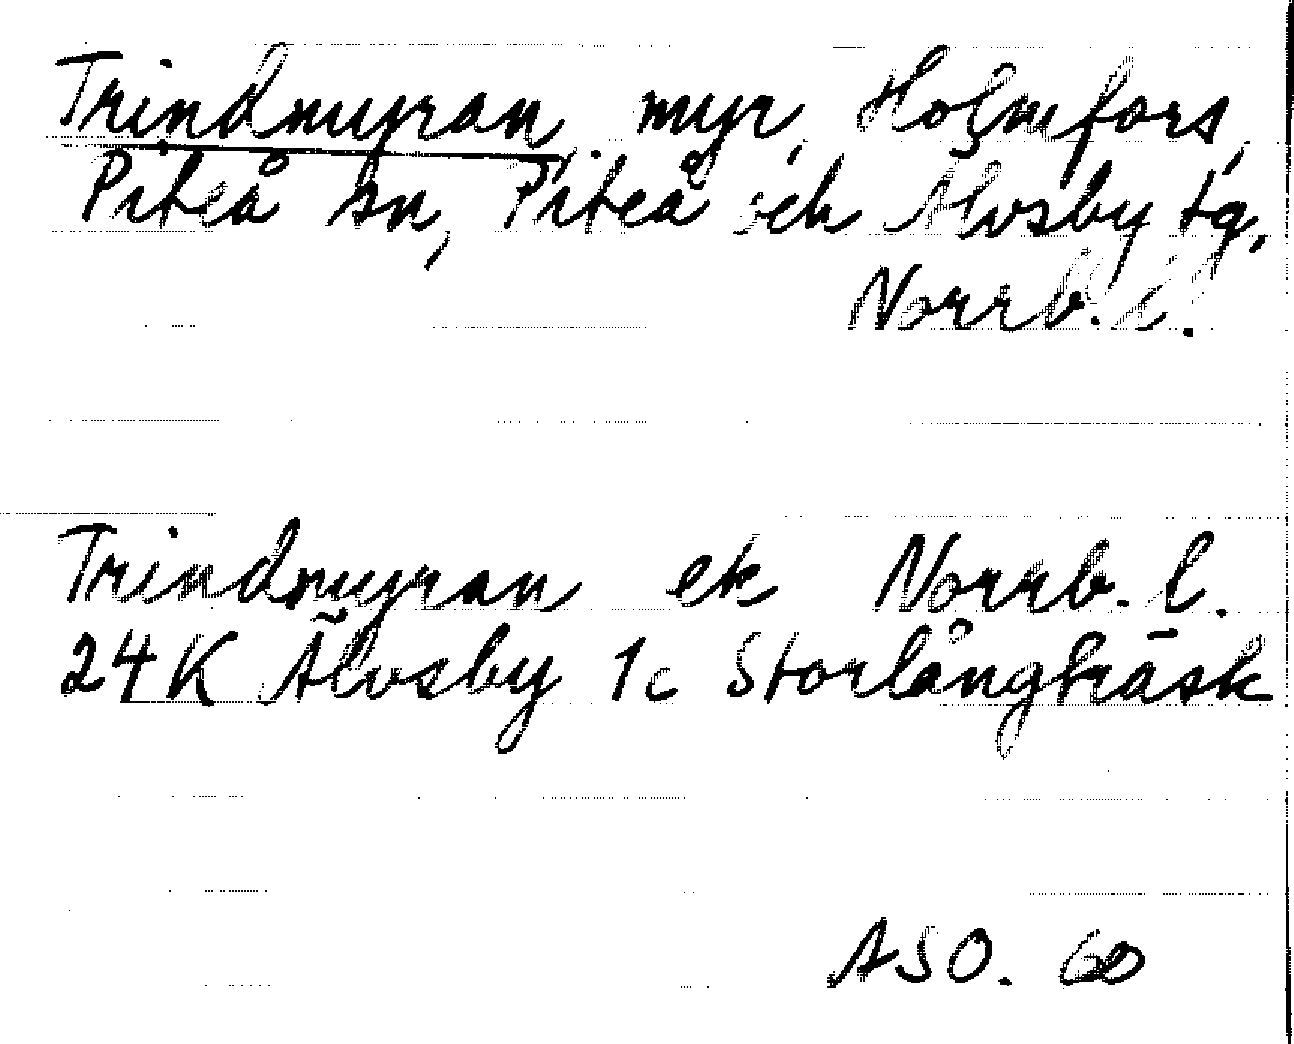 Trindmyran, myr, Holmfors,
Piteå sn, Piteå och Älvsby tg,
Norrb. l.
Trindmyran ek Norrb. l.
24K Älvsby 1c Storlångträsk
ASO. 60